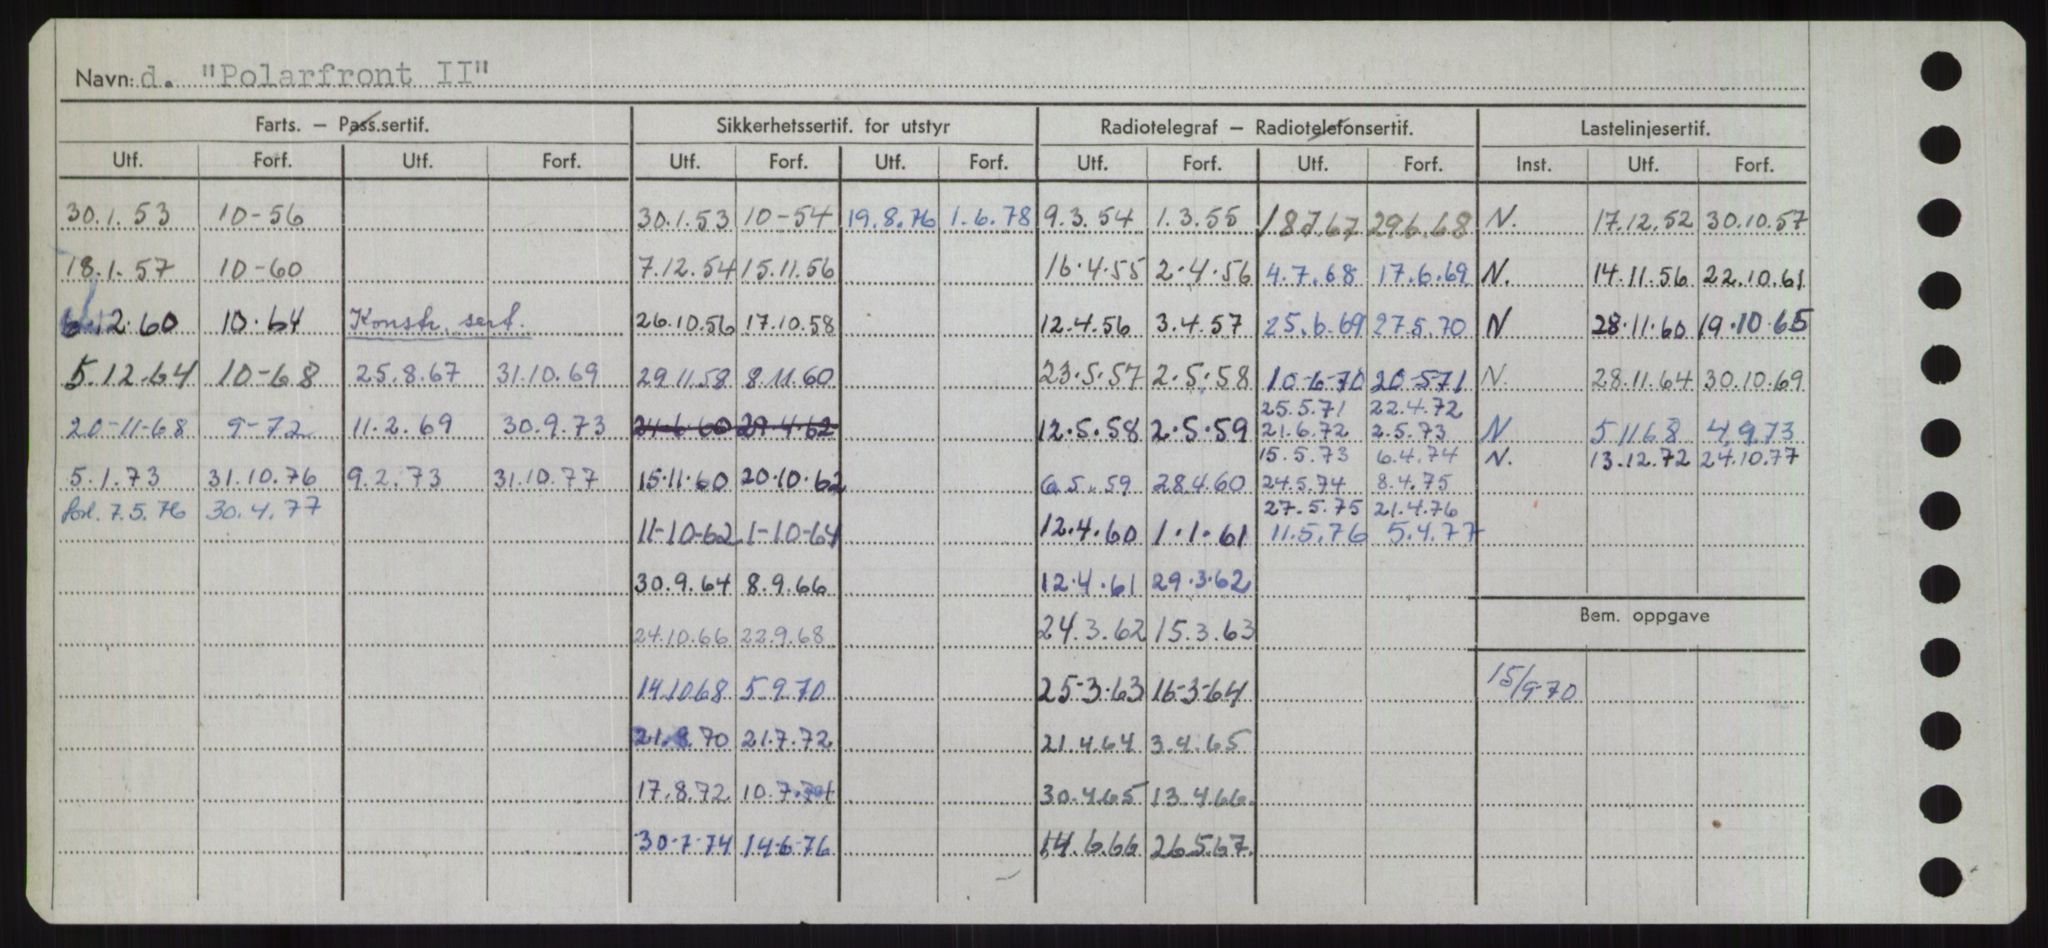 Navn: d. "Polarfront II"
Farts. – Pass.sertif. Sikkerhetssertif. for utstyr Radiotelegraf – Radiotelefonsertif. Lastelinjesertif.
Utf. Forf. Utf. Forf. Utf. Forf. Utf. Forf. Utf. Forf. Utf. Forf. Inst. Utf. Forf.
30.1.53 10-56 30.1.53 10-54 19.8.76 1.6.78 9.3.54 1.3.55 18.7.67 29.6.68 N. 17.12.52 30.10.57
18.1.57 10-60 7.12.54 15.11.56 16.4.55 2.4.56 4.7.68 17.6.69 N. 14.11.56 22.10.61
12.60 10.64 Konstr. sert. 26.10.56 17.10.58 12.4.56 3.4.57 25.6.69 27.5.70 N 28.11.60 19.10.65
5.12.64 10-68 25.8.67 31.10.69 29.11.58 8.11.60 23.5.57 2.5.58 10-6-70 20-5-71 N. 28.11.64 30.10.69
25.5.71 22.4.72
20-11-68 9-72 11.2.69 30.9.73 21.6.60 29.4.62 12.5.58 2.5.59 21.6.72 2.5.73 N 5 11 68 4.9.73
15.5.73 6.4.74 N. 13.12.72 24.10.77
5.1.73 31.10.76 9.2.73 31.10.77 15.11.60 20.10.62 6.5.59 28.4.60 24.5.74 8.4.75
forl. 7.5.76 30.4.77 27.5.75 21.4.76
11-10-62 1-10-64 12.4.60 1.1.61 11.5.76 5.4.77
30.9.64 8.9.66 12.4.61 29.3.62
Bem. oppgave
24.10.66 22.9.68 24.3.62 15.3.63
14.10.68 5.9.70 25-3-63 16-3-64 15/9-70
21.8.70 21.7.72 21.4.64 3.4.65
17.8.72 10.7.74 30.4.65 13.4.66.
30-7-74 14-6-76 14.6.66 26.5.67.